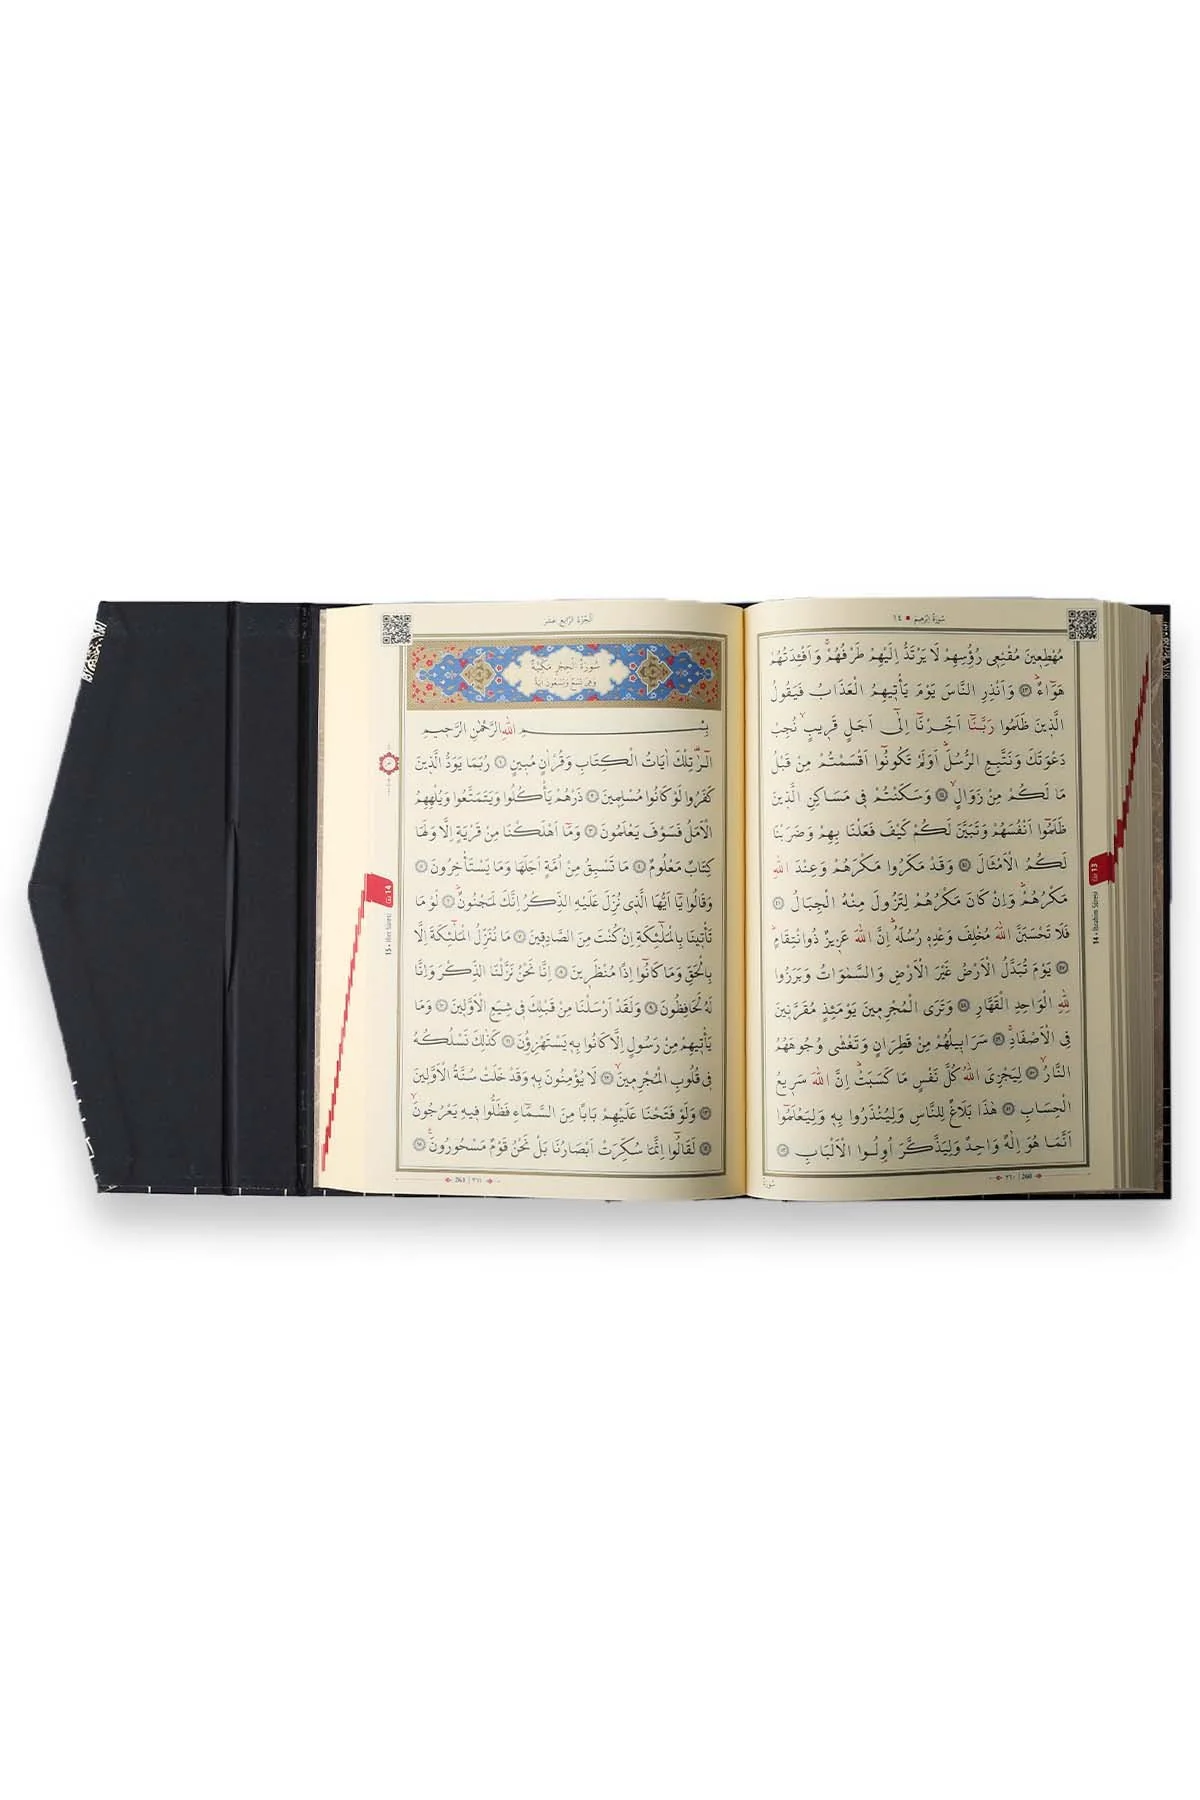 سُورَةُ اِبْرٰه۪يمَ • ١٤
مُهْطِع۪ينَ مُقْنِع۪ي رُؤُ۫سِهِمْ لَا يَرْتَدُّ اِلَيْهِمْ طَرْفُهُمْۚ وَاَفْـِٔدَتُهُمْ
هَوَٓاءٌۜ ﴿٤٣﴾ وَاَنْذِرِ النَّاسَ يَوْمَ يَأْت۪يهِمُ الْعَذَابُ فَيَقُولُ
الَّذ۪ينَ ظَلَمُوا رَبَّنَٓا اَخِّرْنَٓا اِلٰٓى اَجَلٍ قَر۪يبٍۙ نُجِبْ
دَعْوَتَكَ وَنَتَّبِعِ الرُّسُلَۜ اَوَلَمْ تَكُونُٓوا اَقْسَمْتُمْ مِنْ قَبْلُ
مَا لَكُمْ مِنْ زَوَالٍۙ ﴿٤٤﴾ وَسَكَنْتُمْ ف۪ي مَسَاكِنِ الَّذ۪ينَ
ظَلَمُٓوا اَنْفُسَهُمْ وَتَبَيَّنَ لَكُمْ كَيْفَ فَعَلْنَا بِهِمْ وَضَرَبْنَا
لَكُمُ الْاَمْثَالَ ﴿٤٥﴾ وَقَدْ مَكَرُوا مَكْرَهُمْ وَعِنْدَ اللّٰهِ
مَكْرُهُمْۜ وَاِنْ كَانَ مَكْرُهُمْ لِتَزُولَ مِنْهُ الْجِبَالُ ﴿٤٦﴾
فَلَا تَحْسَبَنَّ اللّٰهَ مُخْلِفَ وَعْدِه۪ رُسُلَهُۜ اِنَّ اللّٰهَ عَز۪يزٌ ذُوانْتِقَامٍۜ
﴿٤٧﴾ يَوْمَ تُبَدَّلُ الْاَرْضُ غَيْرَ الْاَرْضِ وَالسَّمٰوَاتُ وَبَرَزُوا
لِلّٰهِ الْوَاحِدِ الْقَهَّارِ ﴿٤٨﴾ وَتَرَى الْمُجْرِم۪ينَ يَوْمَئِذٍ مُقَرَّن۪ينَ
فِي الْاَصْفَادِۚ ﴿٤٩﴾ سَرَاب۪يلُهُمْ مِنْ قَطِرَانٍ وَتَغْشٰى وُجُوهَهُمُ
النَّارُۙ ﴿٥٠﴾ لِيَجْزِيَ اللّٰهُ كُلَّ نَفْسٍ مَا كَسَبَتْۜ اِنَّ اللّٰهَ سَر۪يعُ
الْحِسَابِ ﴿٥١﴾ هٰذَا بَلَاغٌ لِلنَّاسِ وَلِيُنْذَرُوا بِه۪ وَلِيَعْلَمُٓوا
اَنَّمَا هُوَ اِلٰهٌ وَاحِدٌ وَلِيَذَّكَّرَ اُو۬لُوا الْاَلْبَابِ ﴿٥٢﴾
سُورَةُ
٣٦٠ | 260
13
14 • İbrahim Sûresi
اَلْجُزْءُ الرَّابِعَ عَشَرَ
سُورَةُ الْحِجْرِ مَكِّيَّةٌ
وَهِيَ تِسْعٌ وَتِسْعُونَ اٰيَةً
بِسْمِ اللّٰهِ الرَّحْمٰنِ الرَّح۪يمِ
الٓرٰ۠ تِلْكَ اٰيَاتُ الْكِتَابِ وَقُرْاٰنٍ مُب۪ينٍ ﴿١﴾ رُبَمَا يَوَدُّ الَّذ۪ينَ
كَفَرُوا لَوْ كَانُوا مُسْلِم۪ينَ ﴿٢﴾ ذَرْهُمْ يَأْكُلُوا وَيَتَمَتَّعُوا وَيُلْهِهِمُ
الْاَمَلُ فَسَوْفَ يَعْلَمُونَ ﴿٣﴾ وَمَٓا اَهْلَكْنَا مِنْ قَرْيَةٍ اِلَّا وَلَهَا
كِتَابٌ مَعْلُومٌ ﴿٤﴾ مَا تَسْبِقُ مِنْ اُمَّةٍ اَجَلَهَا وَمَا يَسْتَأْخِرُونَ ﴿٥﴾
وَقَالُوا يَٓا اَيُّهَا الَّذ۪ي نُزِّلَ عَلَيْهِ الذِّكْرُ اِنَّكَ لَمَجْنُونٌۜ ﴿٦﴾ لَوْ مَا
تَأْت۪ينَا بِالْمَلٰٓئِكَةِ اِنْ كُنْتَ مِنَ الصَّادِق۪ينَ ﴿٧﴾ مَا نُنَزِّلُ الْمَلٰٓئِكَةَ اِلَّا
بِالْحَقِّ وَمَا كَانُٓوا اِذًا مُنْظَر۪ينَ ﴿٨﴾ اِنَّا نَحْنُ نَزَّلْنَا الذِّكْرَ وَاِنَّا
لَهُ لَحَافِظُونَ ﴿٩﴾ وَلَقَدْ اَرْسَلْنَا مِنْ قَبْلِكَ ف۪ي شِيَعِ الْاَوَّل۪ينَ ﴿١٠﴾ وَمَا
يَأْت۪يهِمْ مِنْ رَسُولٍ اِلَّا كَانُوا بِه۪ يَسْتَهْزِؤُ۫نَ ﴿١١﴾ كَذٰلِكَ نَسْلُكُهُ
ف۪ي قُلُوبِ الْمُجْرِم۪ينَۙ ﴿١٢﴾ لَا يُؤْمِنُونَ بِه۪ وَقَدْ خَلَتْ سُنَّةُ الْاَوَّل۪ينَ
﴿١٣﴾ وَلَوْ فَتَحْنَا عَلَيْهِمْ بَابًا مِنَ السَّمَٓاءِ فَظَلُّوا ف۪يهِ يَعْرُجُونَۙ
﴿١٤﴾ لَقَالُٓوا اِنَّمَا سُكِّرَتْ اَبْصَارُنَا بَلْ نَحْنُ قَوْمٌ مَسْحُورُونَ۟ ﴿١٥﴾
261 | ٣٦١
14
15 • Hicr Sûresi